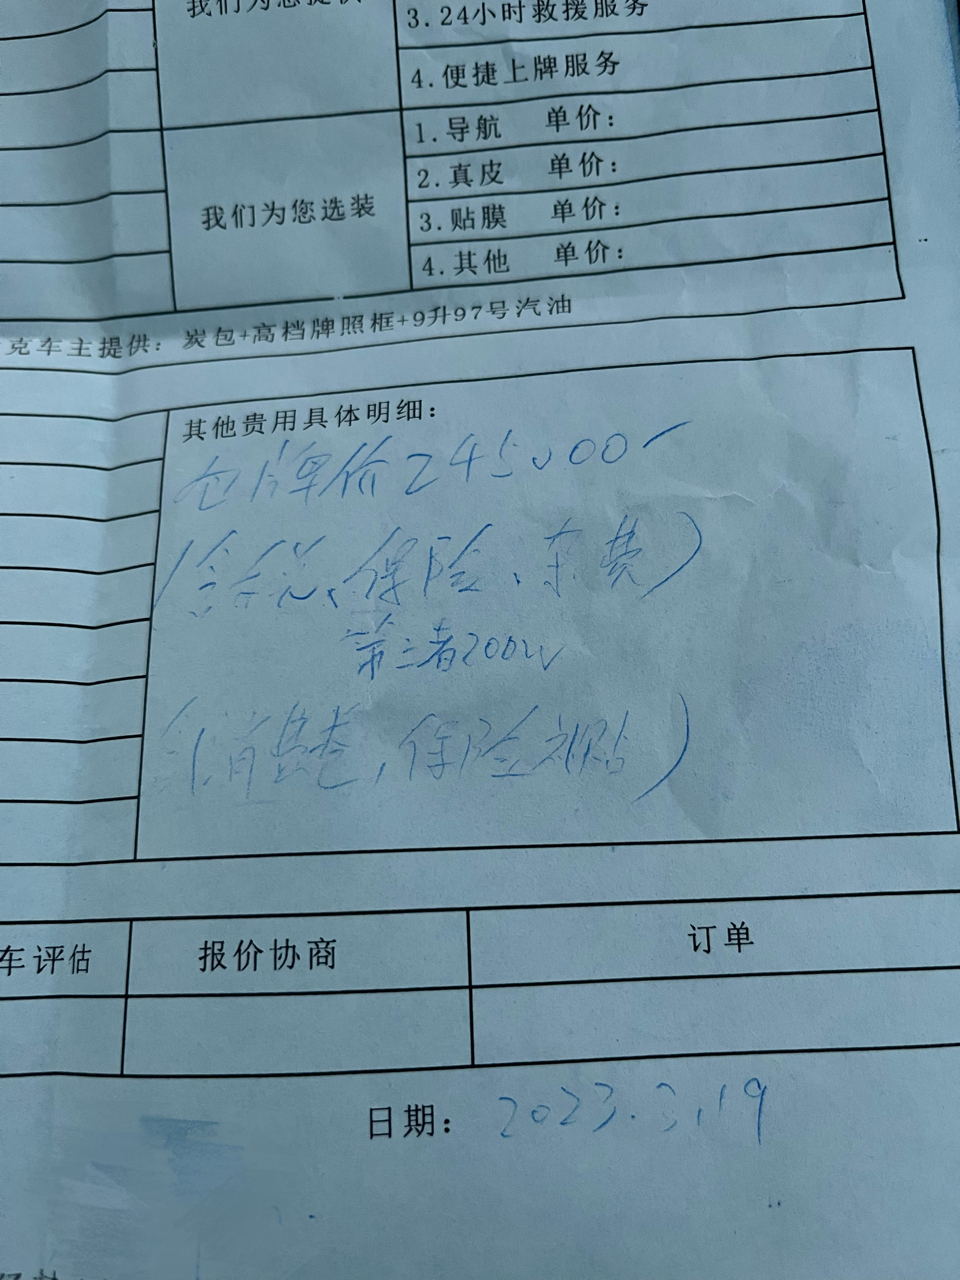 我们为您提供
3.24小时救援服务
4.便捷上牌服务
我们为您选装
1.导航 单价：
2.真皮 单价：
3.贴膜 单价：
4.其他 单价：
克车主提供：炭包+高档牌照框+9升97号汽油
其他贵用具体明细：
包牌价245000
（含税、保险、杂费）
第三者200W
（消费卷，保险补贴）
车评估 报价协商 订单
日期：2023.3.19